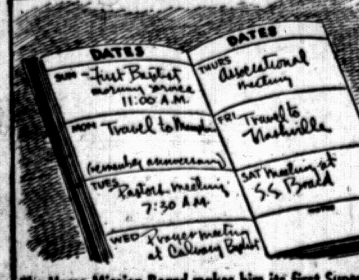 DATES
SUN - First Baptist
morning service
11:00 A.M.
MON Travel to Memphis
(remember anniversary)
TUES Pastors meeting
7:30 A.M.
WED Prayer meeting
at Calvary Baptist
DATES
THURS Associational
meeting
FRI Travel to
Nashville
SAT Meeting at
S.S. Board
NOTES
The Home Mission Board makes him its first